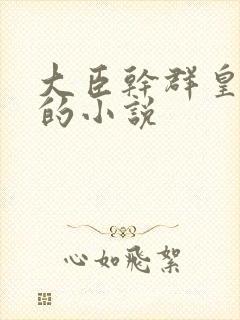 大臣幹群皇
的小説
心如飛絮